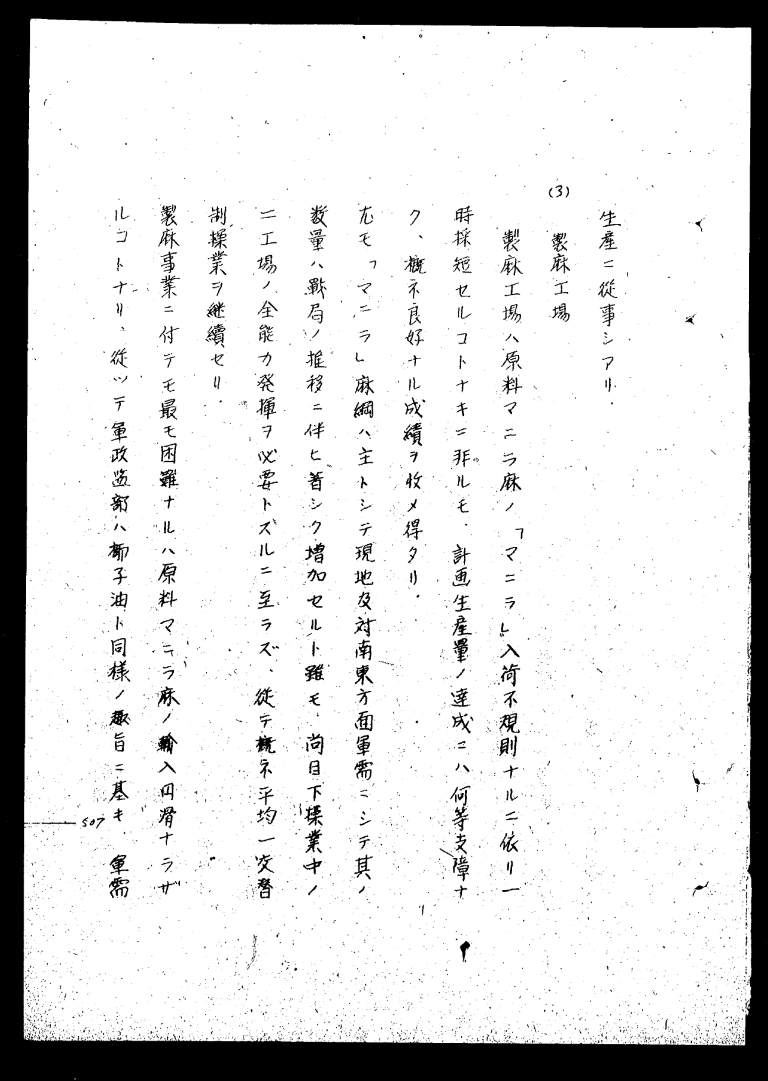 生産ニ従事シアリ.
(3) 製麻工場
製麻工場ハ原料マニラ麻ノ「マニラ」入荷不規則ナルニ依リ一
時採短セルコトナキニ非ルモ.計画生産量ノ達成ニハ何等支障ナ
ク、概ネ良好ナル成績ヲ收メ得タリ.
尤モ「マニラ」麻綱ハ主トシテ現地及対南東方面軍需ニシテ其ノ
数量ハ戰局ノ推移ニ伴ヒ著シク増加セルト雖モ.尚目下操業中ノ
二工場ノ全能力発揮ヲ必要トズルニ至ラズ、従テ概ネ平均一交替
制操業ヲ継續セリ.
製麻事業ニ付テモ最モ困難ナルハ原料マニラ麻ノ輸入円滑ナラザ
ルコトナリ、従ツテ軍政監部ハ椰子油ト同様ノ趣旨ニ基キ 軍需
507